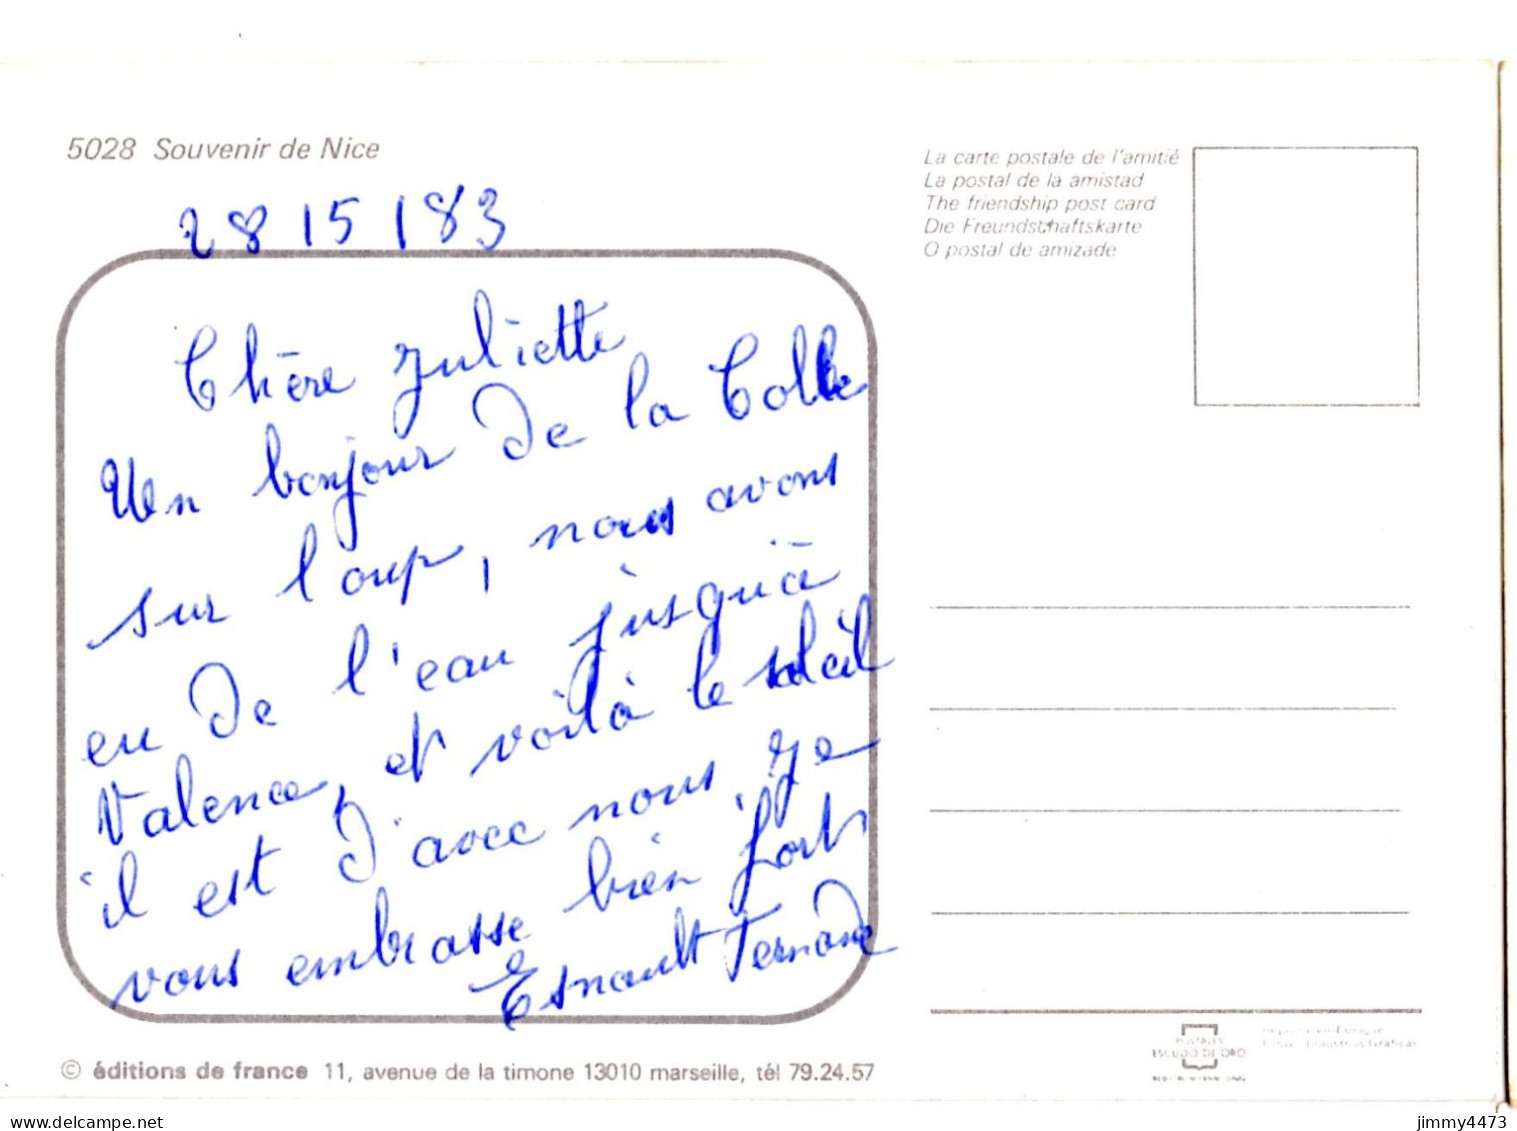 5028 Souvenir de Nice
28 15 183
Chère Juliette
Un bonjour de la Colle
sur loup, nous avons
eu de l'eau jusqu'à
Valence, et voilà le soleil
il est d'avec nous, je
vous embrasse bien fort
Esnault Fernand
La carte postale de l'amitié
La postal de la amistad
The friendship post card
Die Freundschaftskarte
O postal de amizade
© éditions de france 11, avenue de la timone 13010 marseille, tél 79.24.57
POSTALES
ESCUDO DE ORO
jimmy4473